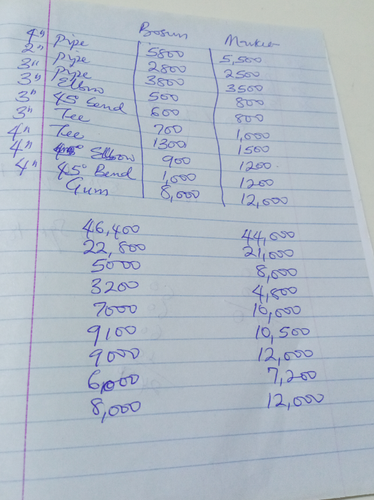 Bosun Market
4" Pipe 5800 5,500
2" Pipe 2800 2500
3" Pipe 3800 3500
3" Elbow 500 800
3" 45° Bend 600 800
3" Tee 700 1,000
4" Tee 1300 1500
4" Elbow 900 1200
4" 45° Bend 1,000 1200
Gum 8,000 12,000
46,400 44,000
22,800 21,000
5000 8,000
3200 4,800
7000 10,000
9100 10,500
9000 12,000
6,000 7,200
8,000 12,000